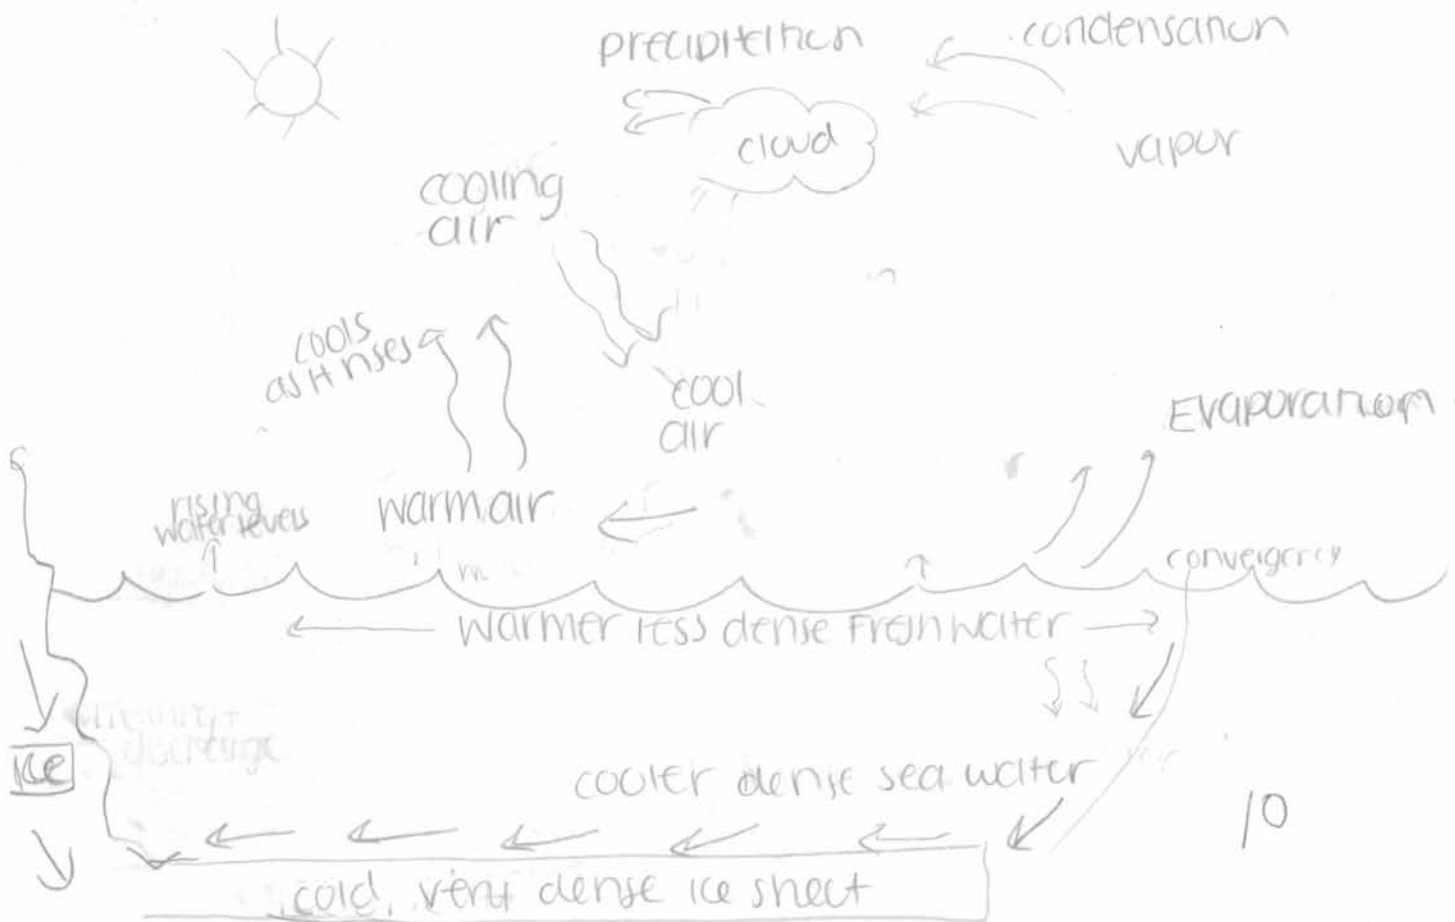 precipitation
condensation
cloud
vapur
cooling
air
cools
as it rises
cool
air
Evaporation
rising
water levels
warm air
convergency
warmer less dense Freshwater
discharge
Ice
cooler dense sea water
10
cold, dense ice sheet